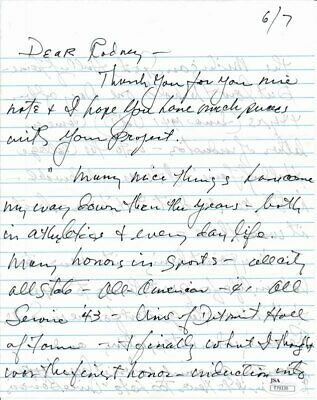 6/7
Dear Rodney –
Thank you for you nice
note & I hope you have much success
with your project.
" Many nice things have come
my way down then the years – both
in athletics & every day life.
Many honors in sports – all city
all state – all-American – & all
Service '43 – Univ of Detroit Hall
of Fame – & finally what I thought
was the finest honor – induction into
JSA